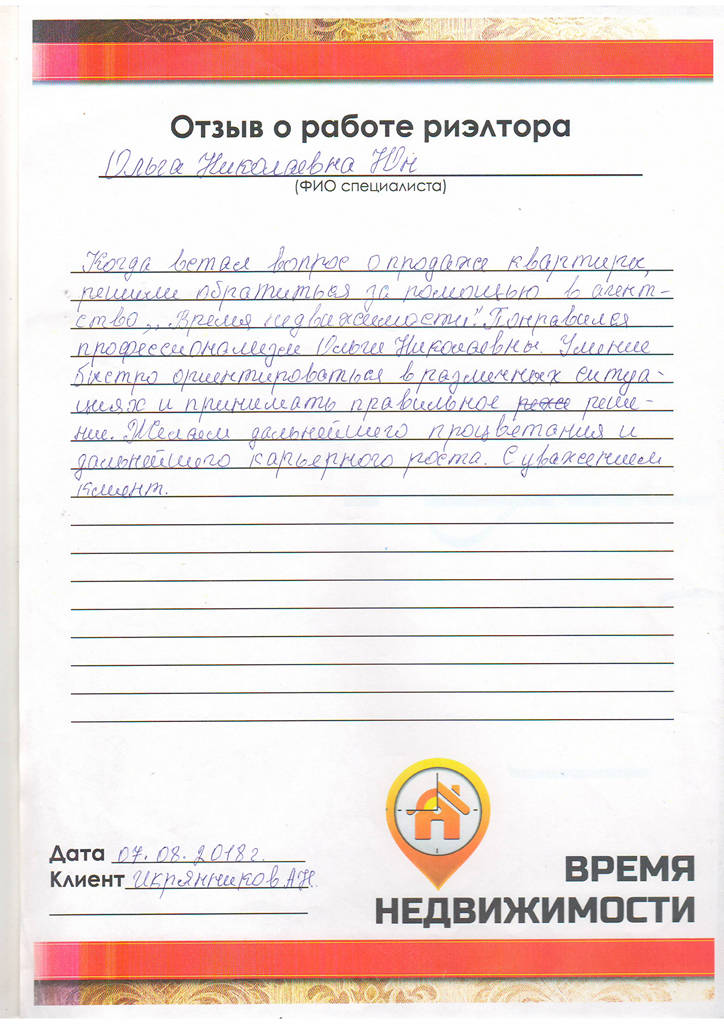 Отзыв о работе риэлтора
Ольга Николаевна Юн
(ФИО специалиста)
Когда встал вопрос о продаже квартиры,
решили обратиться за помощью в агент-
ство „Время недвижимости". Понравился
профессионализм Ольги Николаевны. Умение
быстро ориентироваться в различных ситуа-
циях и принимать правильное реше-
ние. Желаем дальнейшего процветания и
дальнейшего карьерного роста. С уважением
клиент.
Дата 07.08.2018г.
Клиент Икрянников А.Н.
ВРЕМЯ
НЕДВИЖИМОСТИ